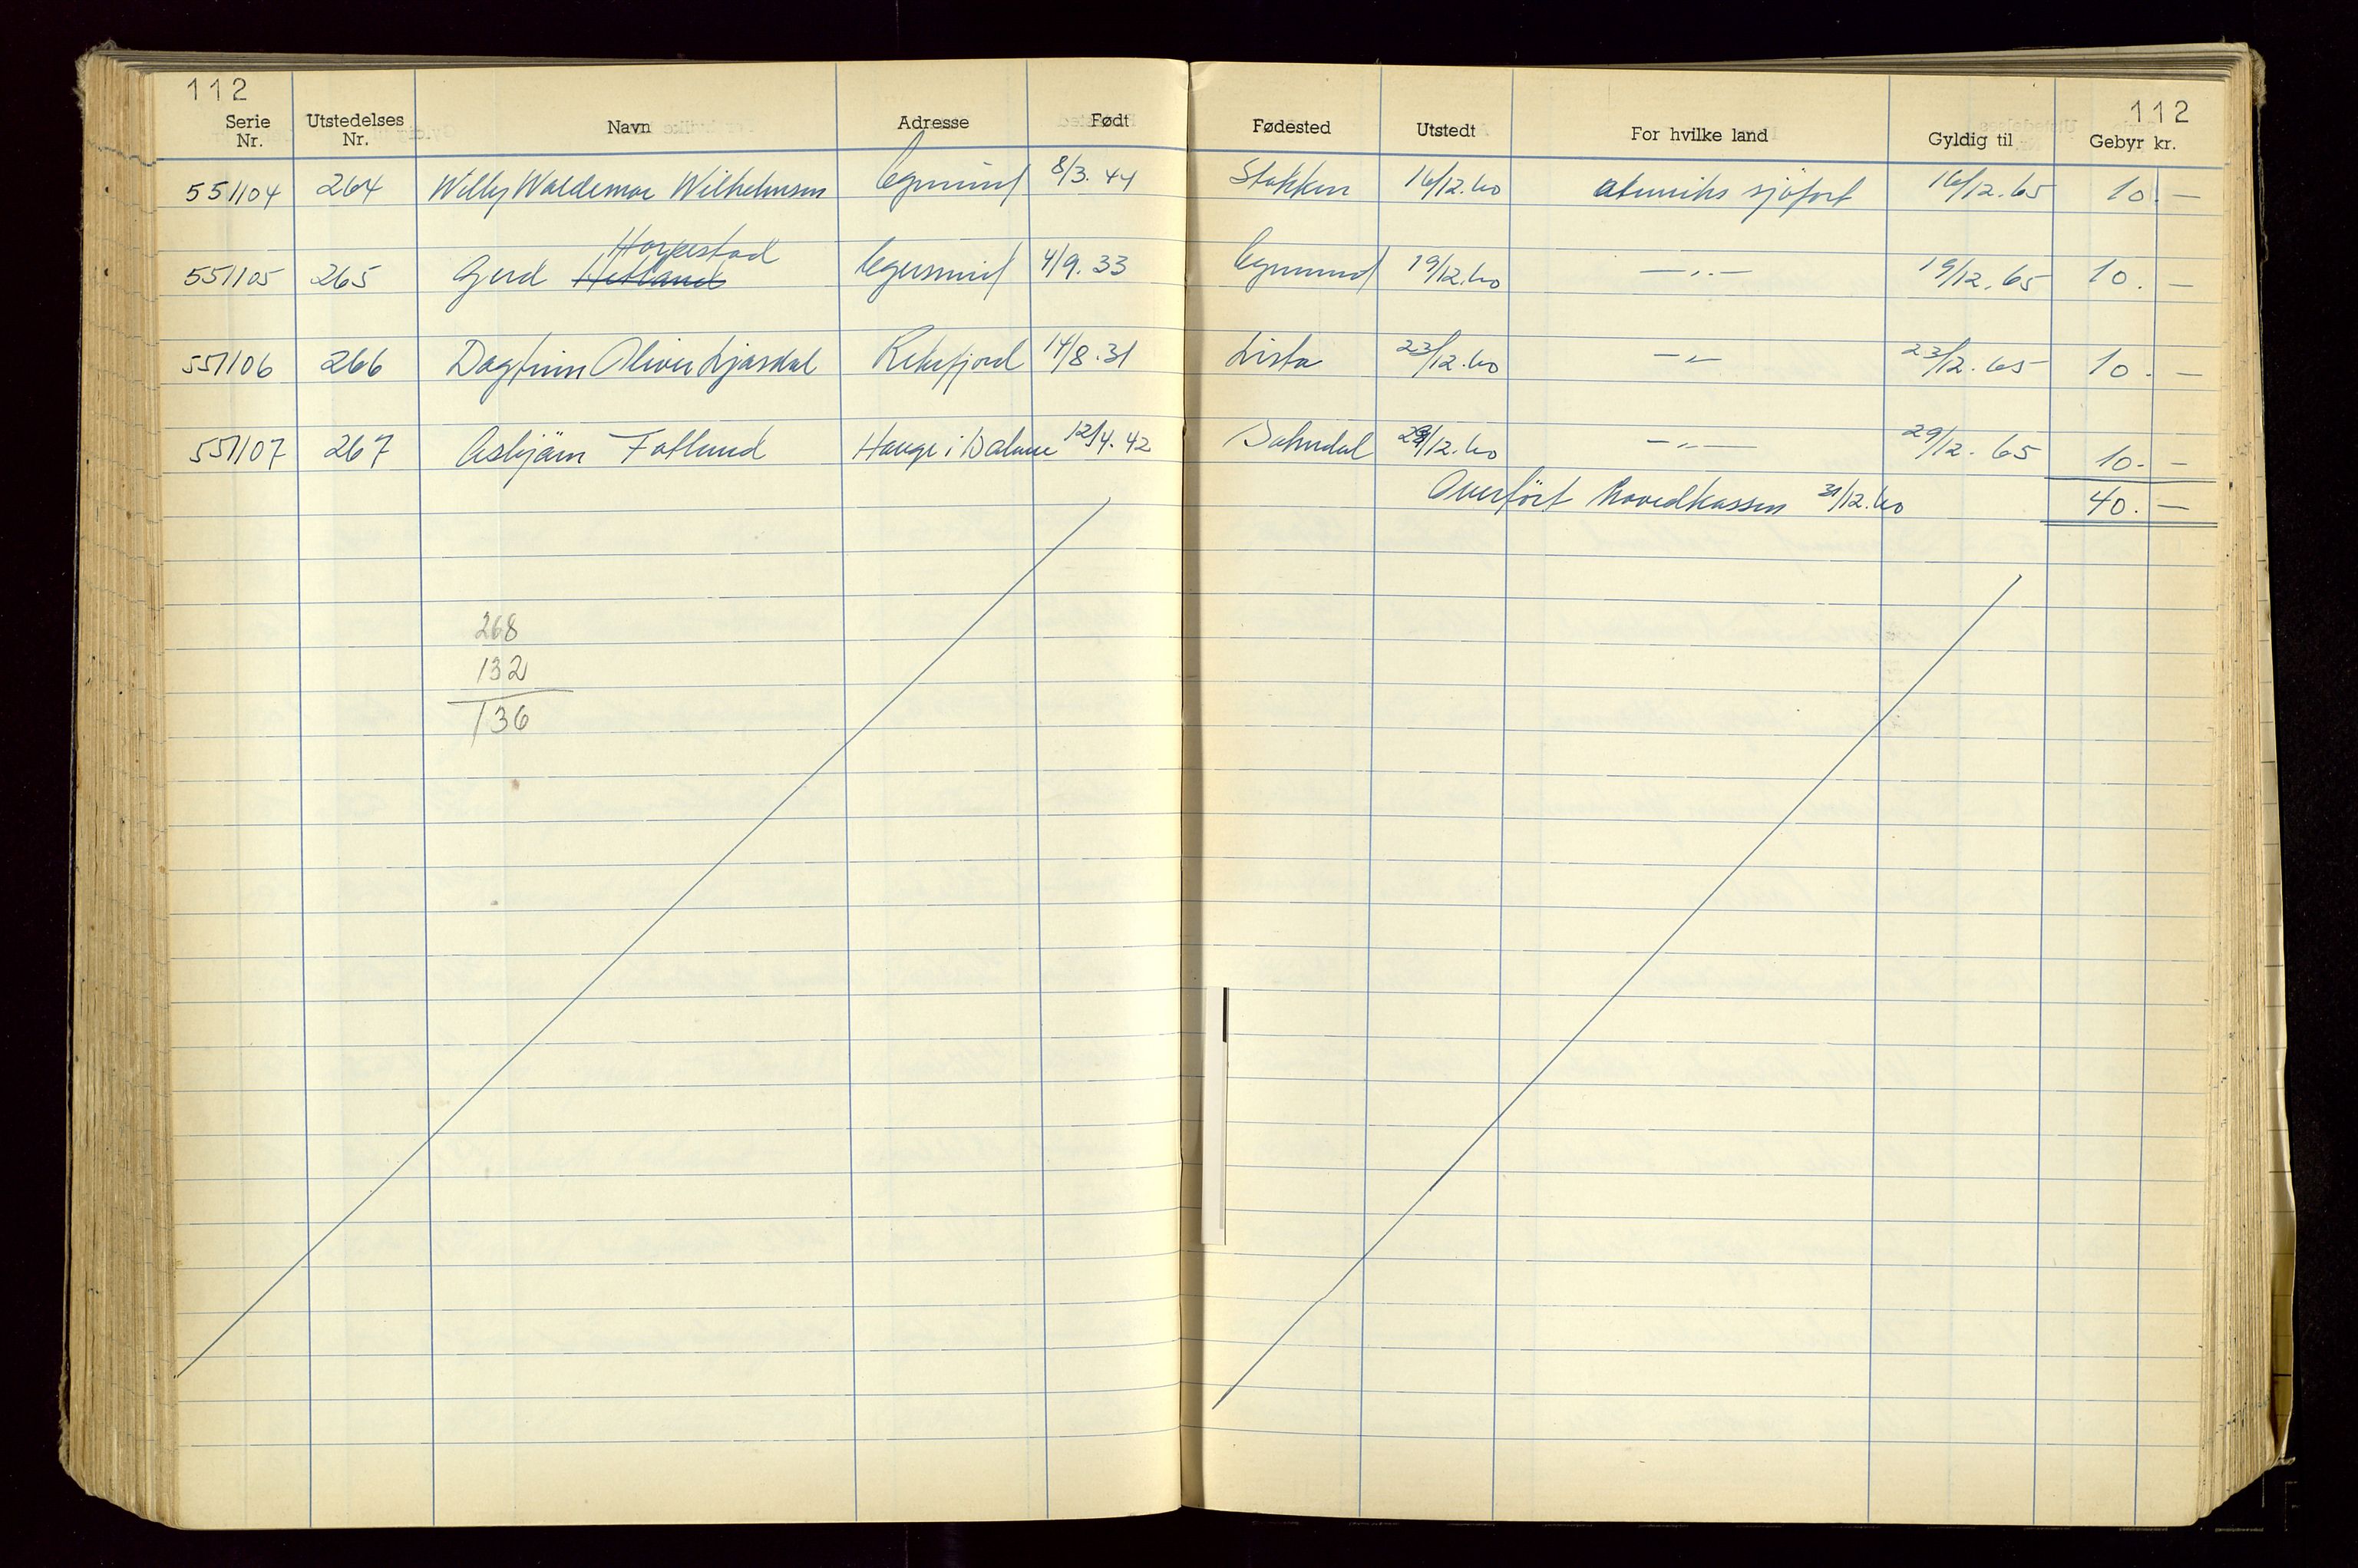 112
112
Serie Nr. Utstedelses Nr. Navn Adresse Født Fødested Utstedt For hvilke land Gyldig til Gebyr kr.
551104 264 Willy Waldemar Wilhelmsen Egersund 8/3. 44 Stokken 16/12.60 utenriks sjøfart 16/12.65 10. —
Horpestad
551105 265 Gerd Hetland Egersund 4/9. 33 Egersund 19/12.60 — „ — 19/12.65 10. —
551106 266 Dagfinn Oliver Ljosdal Rekefjord 14/8.31 Lista 23/12.60 — „ — 23/12.65 10. —
551107 267 Asbjørn Fotland Hauge i Dalane 12/4.42 Sokndal 29/12.60 — „ — 29/12.65 10. —
Overført hovedkassen 31/12.60 40. —
268
132
136